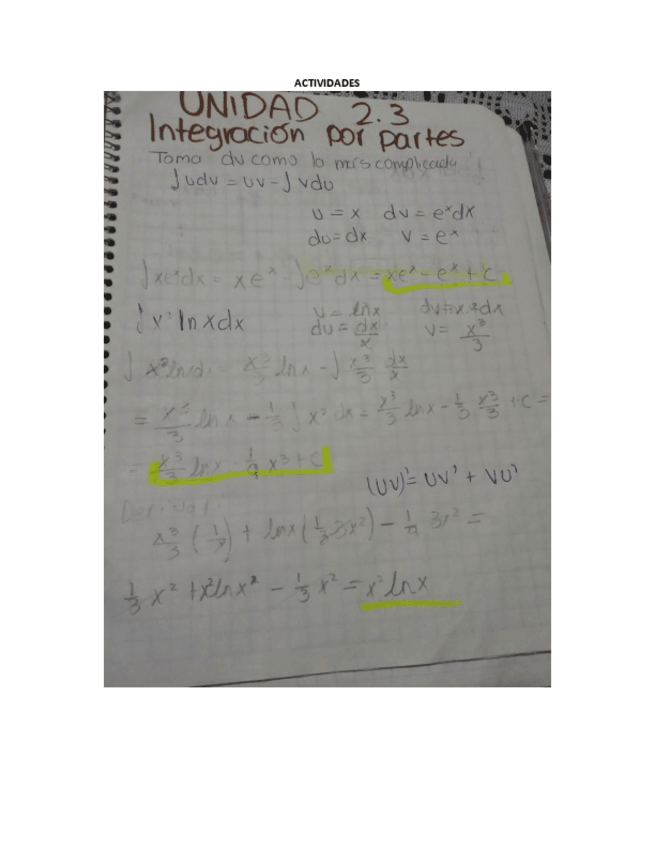 ACTIVIDADES
UNIDAD 2.3
Integración por partes
Toma dv como la más complicada
∫udv = uv - ∫vdu
u = x dv = eˣdx
du = dx v = eˣ
∫xeˣdx = xeˣ - ∫eˣdx = xeˣ - eˣ + C
∫x² ln x dx u = lnx dv = x²dx
du = dx/x v = x³/3
∫ x² ln dx = x³/3 ln x - ∫ x³/3 dx/x
= x³/3 ln x - 1/3 ∫ x² dx = x³/3 ln x - 1/3 x³/3 + C =
= x³/3 ln x - 1/9 x³ + C
(UV)' = UV' + VU'
Derivar
x³/3 (1/x) + ln x (1/3 3x²) - 1/9 3x² =
1/3 x² + x² ln x² - 1/3 x² = x² ln x